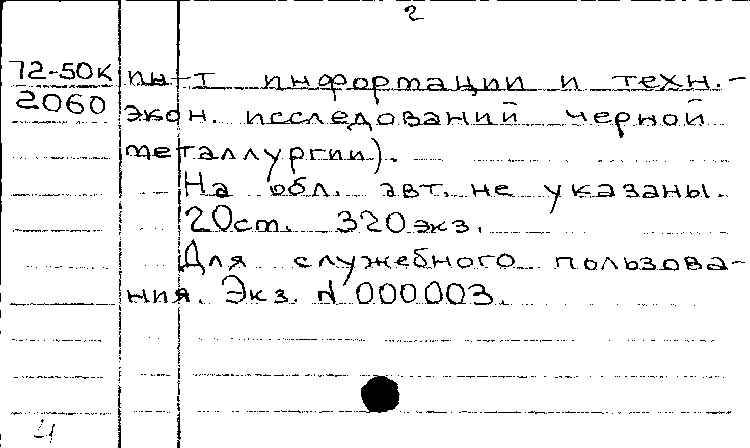 2
72-50к ин-т информации и техн.-
2060 экон. исследований черной
металлургии).
На обл. авт. не указаны.
20ст. 320экз.
Для служебного пользова-
ния. Экз. N 000003.